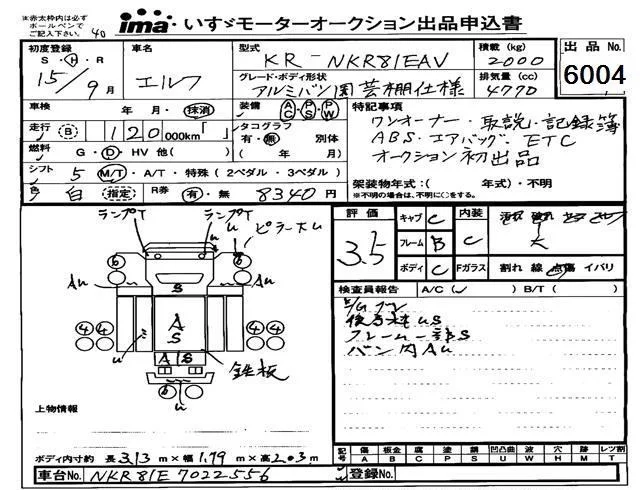 ※赤太枠内は必ず
ボールペンで
ご記入下さい。 40
ima いすゞモーターオークション出品申込書
出品No.
6004
初度登録
S・H・R
15/9月
車名
エルフ
型式
KR-NKR81EAV
積載 (kg)
2000
グレード・ボディ形状
アルミバン園芸棚仕様
排気量 (cc)
4770
車検 年・月・抹消
装備 AC・PS・PW
特記事項
ワンオーナー・取説・記録簿
ABS・エアバッグ・ETC
オークション初出品
走行 B 120000km「 」
タコグラフ
有・無 別体
( 年 月)
燃料 G・D・HV 他( )
シフト 5 M/T・A/T・特殊(2ペダル・3ペダル)
架装物年式:( 年式)・不明
※不明の場合は、不明に○をする。
色 白 (指定) R券 有・無 8340円
評価
3.5
キャブ C
内装 C
フレーム B
ボディ C
Fガラス 割れ 線 点傷 イバリ
大
検査員報告 A/C(✓) B/T( )
フレーム一部S
バン内AU
ランプT ランプT
U ピラーAU
6 6
AU AU
S
4 4 4 4
A
S
U
A S
鉄板
6
U
上物情報
ボディ内寸約 長3.13m×幅1.79m×高2.03m
車台No. NKR81E 7022556
登録No.
記号 傷 板金 腐 塗 錆 凹凸曲 波 穴 跡 レツ割
A B C P S U W H M T